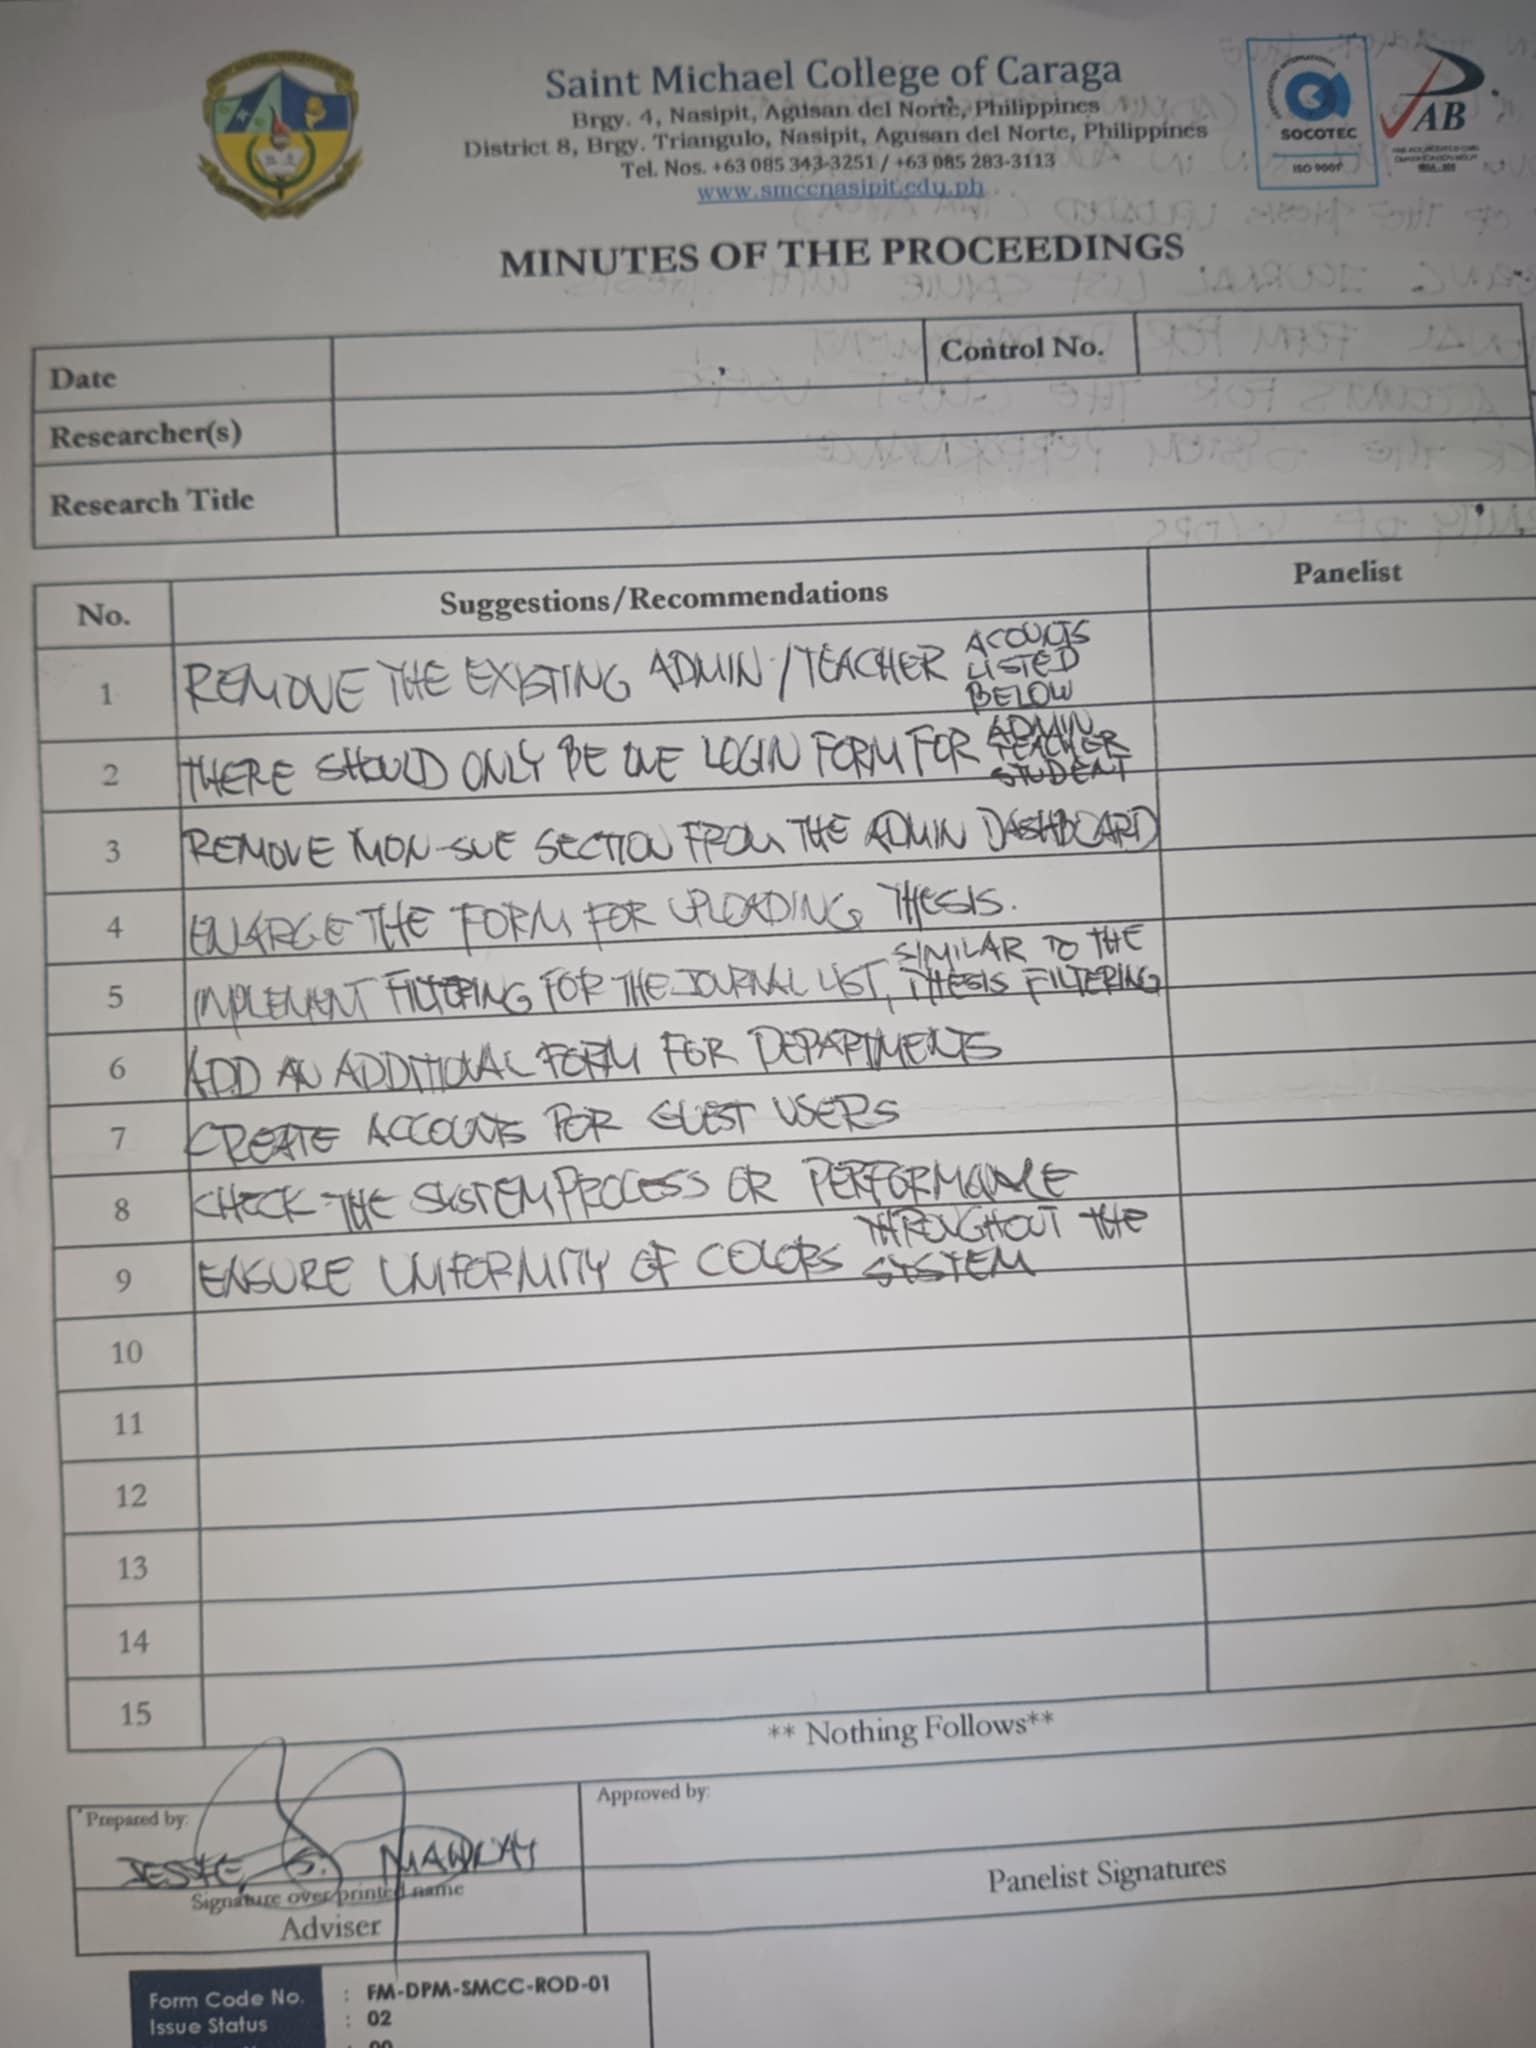 Saint Michael College of Caraga
Brgy. 4, Nasipit, Agusan del Norte, Philippines
District 8, Brgy. Triangulo, Nasipit, Agusan del Norte, Philippines
Tel. Nos. +63 085 343-3251 / +63 085 283-3113
www.smccnasipit.edu.ph
SOCOTEC
ISO 9001
PAB
MINUTES OF THE PROCEEDINGS
Date
Control No.
Researcher(s)
Research Title
No. Suggestions/Recommendations Panelist
1 REMOVE THE EXISTING ADMIN/TEACHER ACOUNTS LISTED BELOW
2 THERE SHOULD ONLY BE ONE LOGIN FORM FOR ADMIN TEACHER STUDENT
3 REMOVE MON-SUE SECTION FROM THE ADMIN DASHBOARD
4 ENLARGE THE FORM FOR UPLOADING THESIS.
5 IMPLEMENT FILTERING FOR THE JOURNAL LIST, SIMILAR TO THE THESIS FILTERING
6 ADD AN ADDITIONAL FORM FOR DEPARTMENTS
7 CREATE ACCOUNTS FOR GUEST USERS
8 CHECK THE SYSTEM PROCESS OR PERFORMANCE
9 ENSURE UNIFORMITY OF COLORS THROUGHOUT THE SYSTEM
10
11
12
13
14
15
** Nothing Follows**
Prepared by:
Approved by:
Signature over printed name
Adviser
Panelist Signatures
Form Code No. : FM-DPM-SMCC-ROD-01
Issue Status : 02